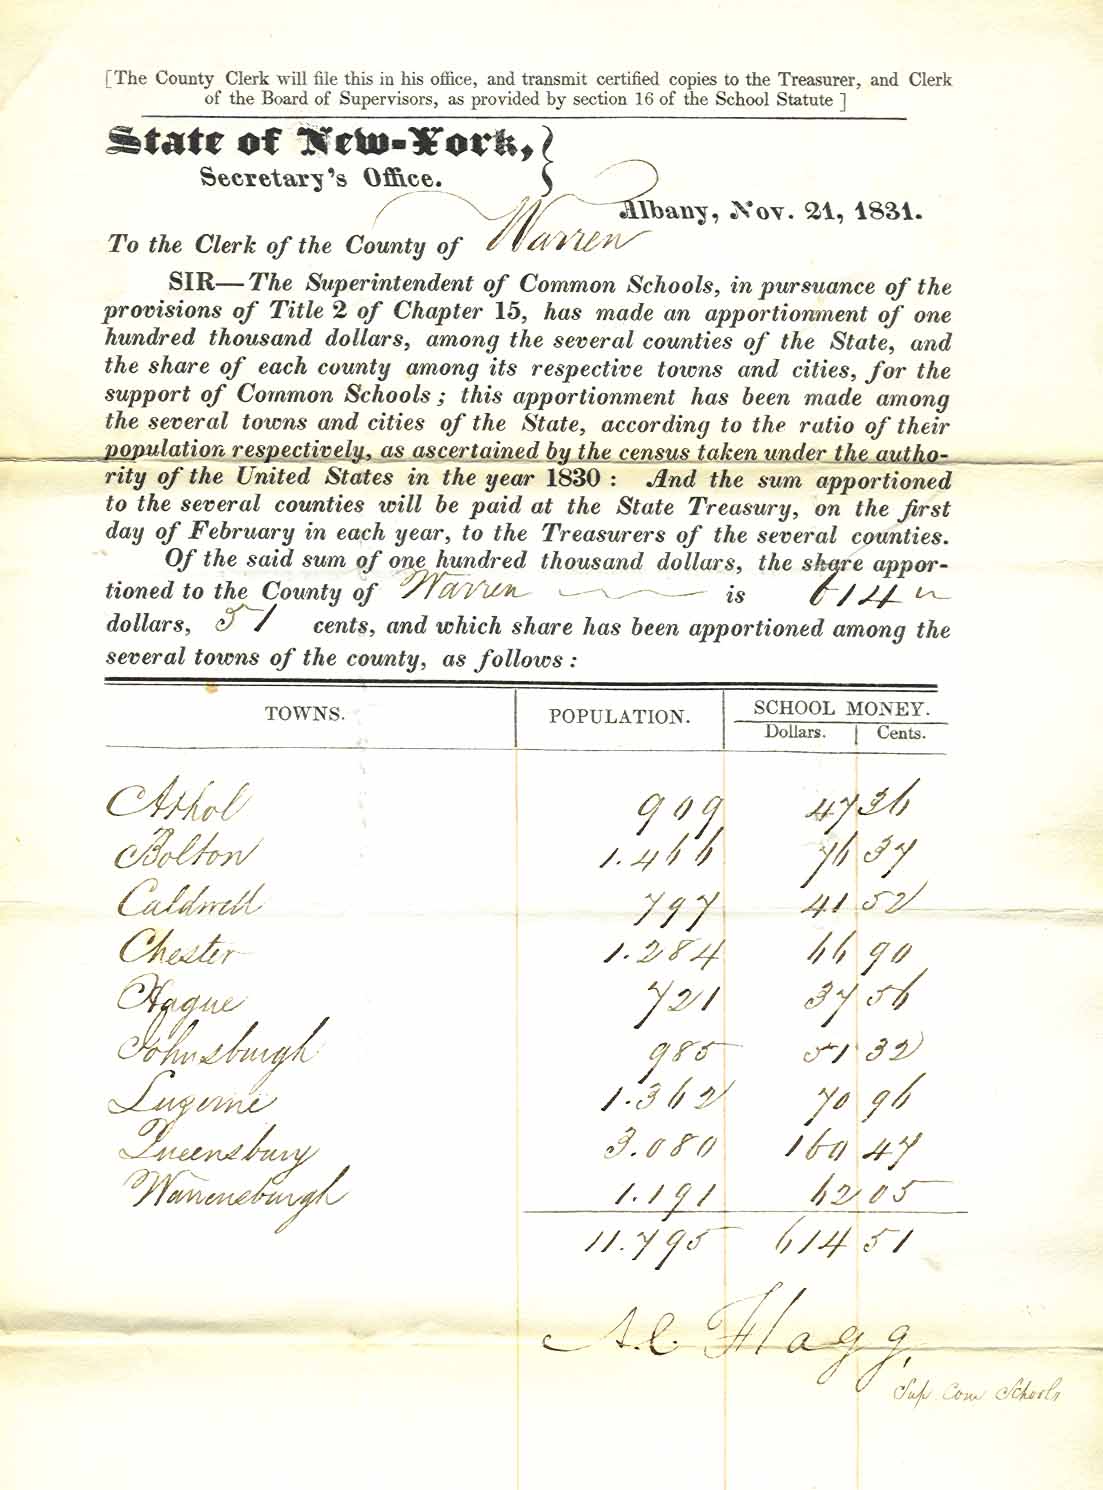 [The County Clerk will file this in his office, and transmit certified copies to the Treasurer, and Clerk
of the Board of Supervisors, as provided by section 16 of the School Statute ]
State of New-York,
Secretary's Office.
Albany, Nov. 21, 1831.
To the Clerk of the County of Warren
SIR—The Superintendent of Common Schools, in pursuance of the
provisions of Title 2 of Chapter 15, has made an apportionment of one
hundred thousand dollars, among the several counties of the State, and
the share of each county among its respective towns and cities, for the
support of Common Schools; this apportionment has been made among
the several towns and cities of the State, according to the ratio of their
population respectively, as ascertained by the census taken under the autho-
rity of the United States in the year 1830: And the sum apportioned
to the several counties will be paid at the State Treasury, on the first
day of February in each year, to the Treasurers of the several counties.
Of the said sum of one hundred thousand dollars, the share appor-
tioned to the County of Warren is 614
dollars, 51 cents, and which share has been apportioned among the
several towns of the county, as follows:
TOWNS. POPULATION. SCHOOL MONEY.
Dollars. Cents.
Athol 909 47 36
Bolton 1.466 76 37
Caldwell 797 41 52
Chester 1.284 66 90
Hague 721 37 56
Johnsburgh 985 51 32
Luzerne 1.362 70 96
Queensbury 3.080 160 47
Warrensburgh 1.191 62 05
11.795 614 51
A.C. Flagg,
Sup. Com Schools